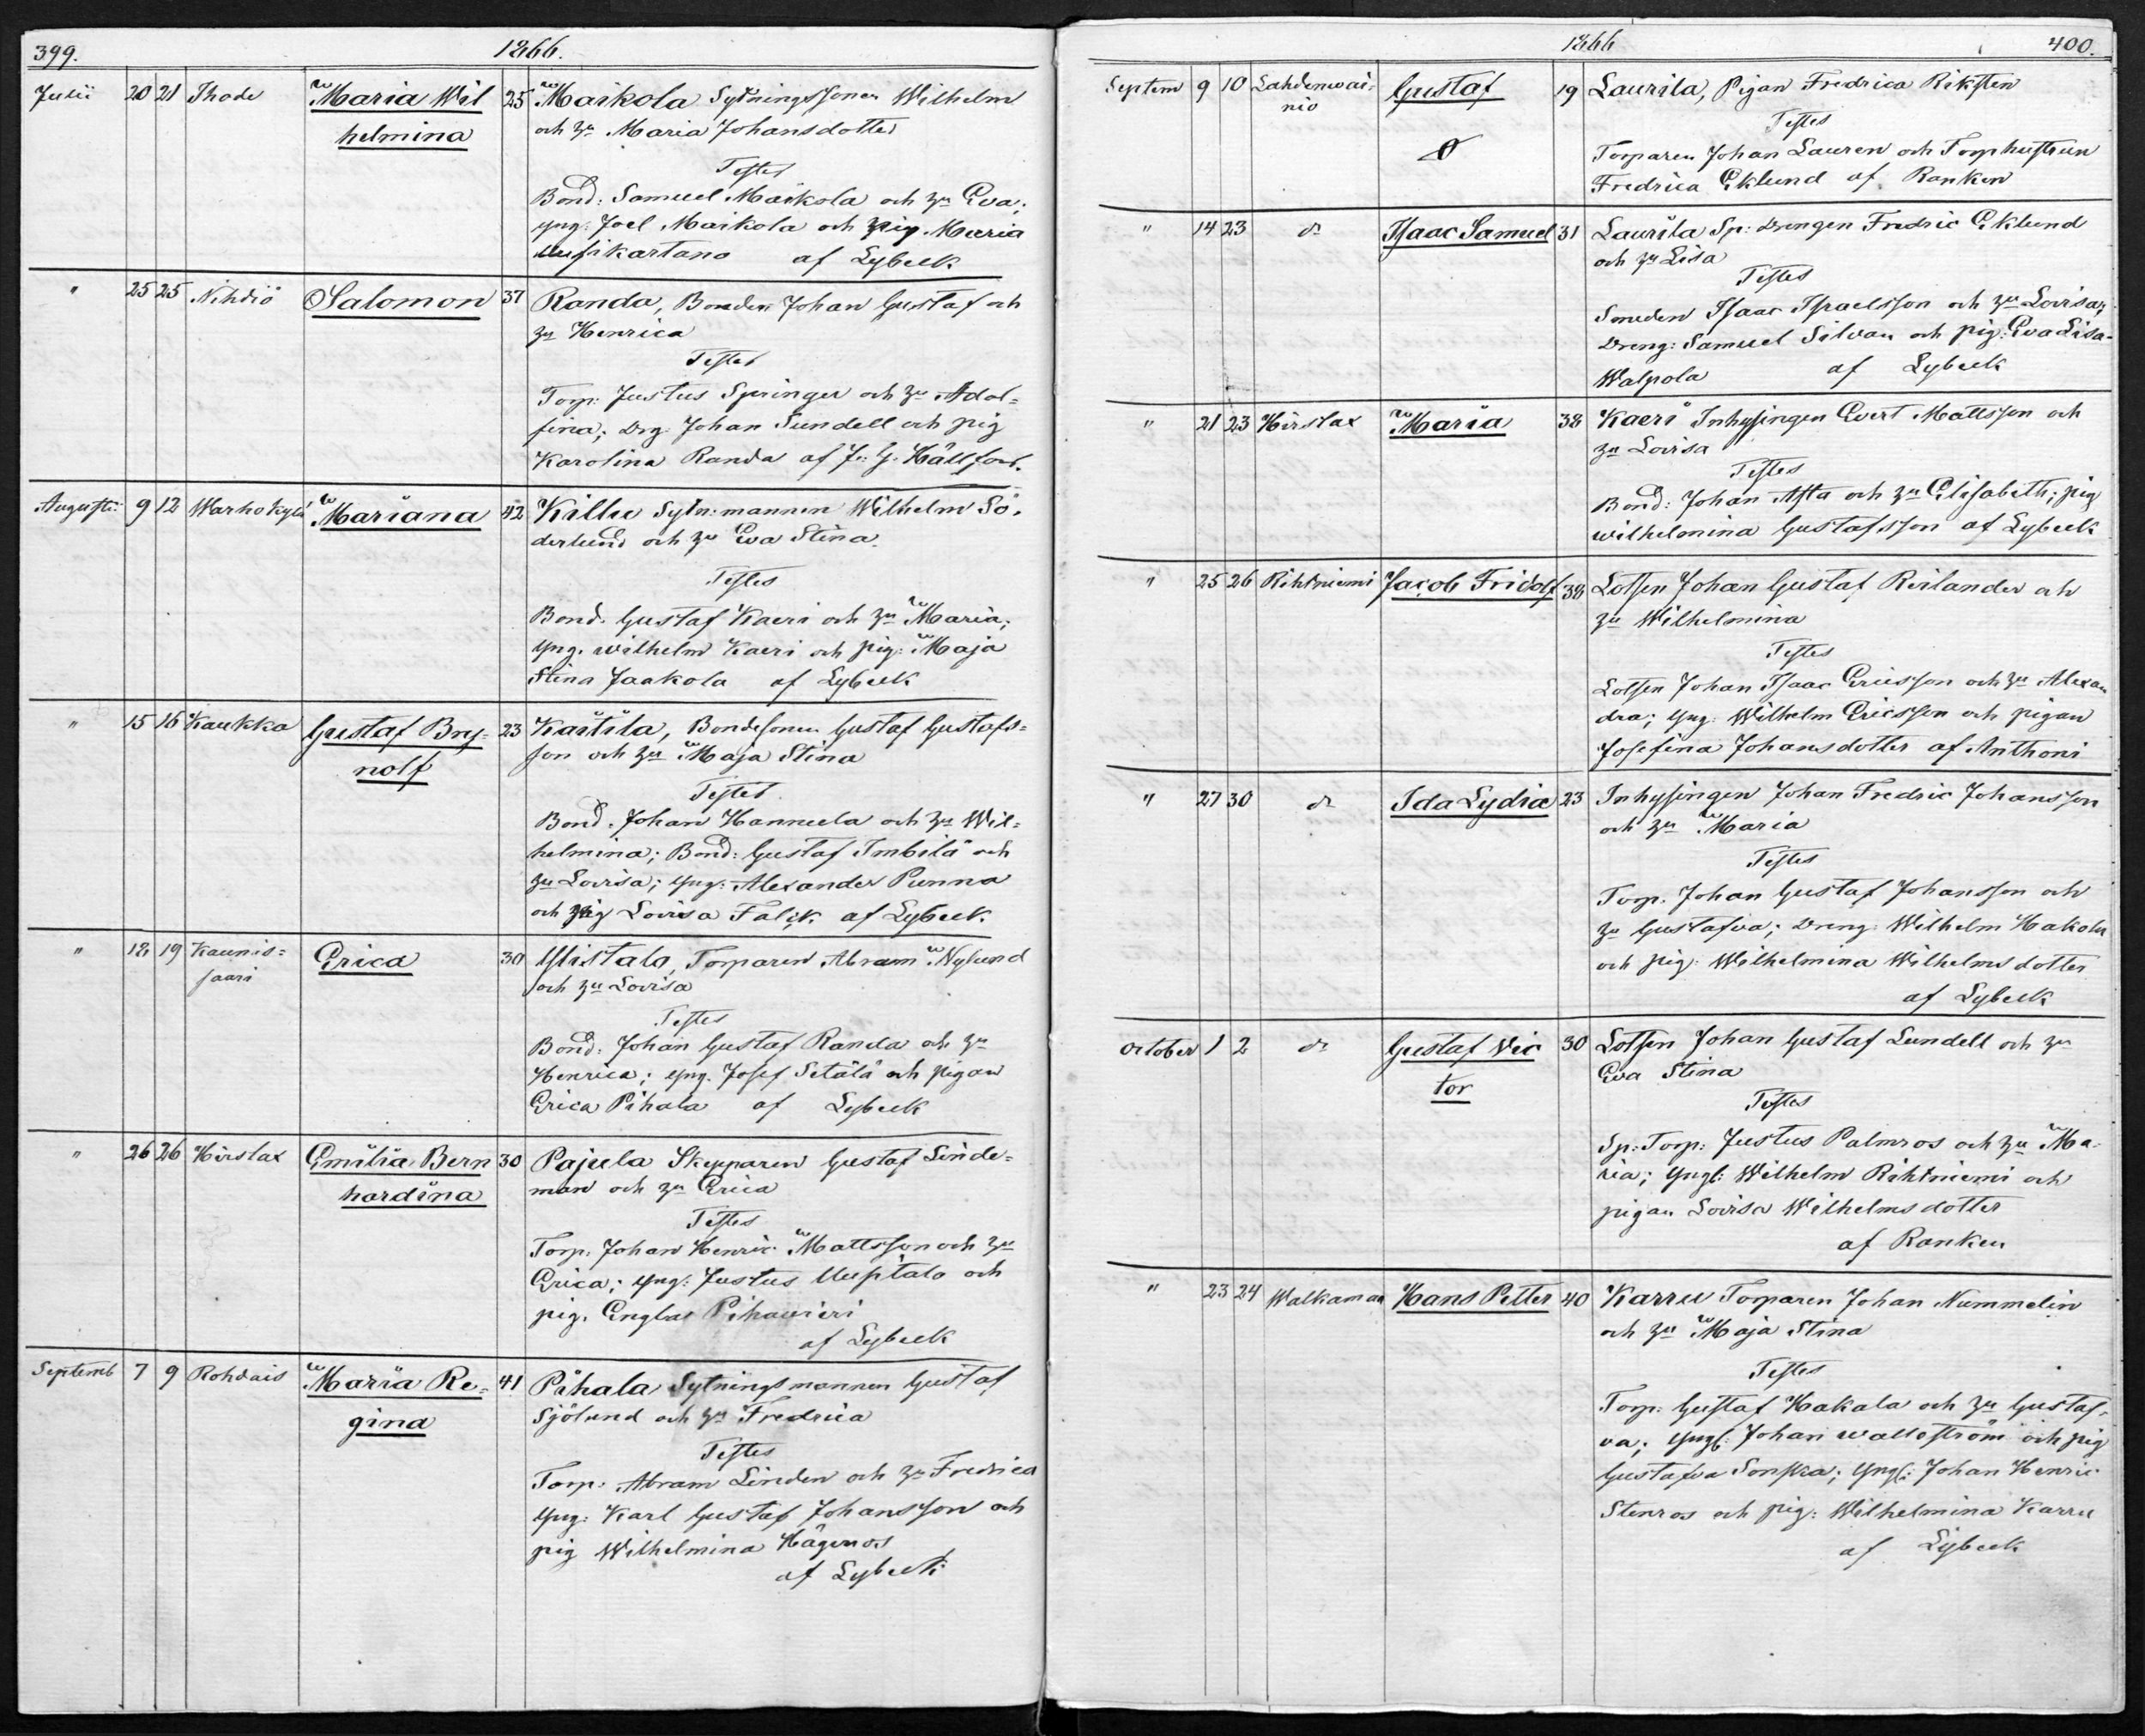 399.
1866.
Julii 20 21 Thode Maria Wil 25 Maikola Sytningssonen Wilhelm
helmina och hu Maria Johansdotter
Testes
Bond: Samuel Maikola och hu Eva;
yng: Joel Maikola och pig. Maria
Uusikartano af Lybeck
" 25 25 Nihdiö Salomon 37 Randa, Bonden Johan Gustaf och
hu Henrica
Testes
Torp: Justus Springer och hu Adol=
fina; Drg: Johan Sundell och pig
Karolina Randa af J. G. Hällfors.
Augusti 9 12 Warhokylä Mariana 42 Killu Sytn:mannen Wilhelm Sö-
derlund och hu Eva Stina.
Testes
Bond. Gustaf Kaeri och hu Maria;
yng. Wilhelm Kaeri och pig: Maja
Stina Jaakola af Lybeck
" 15 16 Kaukka Gustaf Bry= 23 Kaitila, Bondesonen Gustaf Gustafs=
nolf son och hu Maja Stina
Testes
Bond. Johan Hannula och hu Wil=
helmina; Bond: Gustaf Imbilä och
hu Lovisa; yng: Alexander Punna
och pig Lovisa Falck af Lybeck.
" 18 19 Kaunis= Erica 30 Ylistalo, Torparen Abram Nylund
saari och hu Lovisa
Testes
Bond: Johan Gustaf Randa och hu
Henrica; yng. Josef Setälä och pigan
Erica Pihala af Lybeck
" 26 26 Hirslax Emilia Bern 30 Pajula Skepparen Gustaf Linde=
hardina man och hu Erica
Testes
Torp: Johan Henric Mattsson och hu
Erica; yng: Justus Uusitalo och
pig. Engla Pihavieri
af Lybeck
Septemb 7 9 Rohdais Maria Re= 41 Pihala Sytningsmannen Gustaf
gina Sjölund och hu Fredrica
Testes
Torp: Abram Linden och hu Fredrica
yng: Karl Gustaf Johansson och
pig Wilhelmina Hägeros
af Lybeck
1866
400.
Septem 9 10 Lahdenwai- Gustaf 19 Laurila, Pigan Fredrica Riksten
nio
Testes
Torparen Johan Lauren och Torphustrun
Fredrica Eklund af Ranken
" 14 23 do Isaac Samuel 31 Laurila Sp: drengen Fredric Eklund
och hu Lisa
Testes
Smeden Isaac Israelsson och hu Lovisa;
Dreng: Samuel Silvan och pig: Eva Lisa
Walpola af Lybeck
" 21 23 Hirslax Maria 38 Kaeri Inhysingen Evert Mattsson och
hu Lovisa
Testes
Bond: Johan Asta och hu Elisabeth; pig
Wilhelmina Gustafsson af Lybeck
" 25 26 Rihtniemi Jacob Fridolf 38 Lotsen Johan Gustaf Reilander och
hu Wilhelmina
Testes
Lotsen Johan Isaac Ericsson och hu Alexan
dra; yng: Wilhelm Ericsson och pigan
Josefina Johansdotter af Anthoni
" 27 30 do Ida Lydia 23 Inhysingen Johan Fredric Johansson
och hu Maria
Testes
Torp. Johan Gustaf Johansson och
hu Gustafva; Dreng: Wilhelm Hakola
och pig: Wilhelmina Wilhelmsdotter
af Lybeck
October 1 2 do Gustaf Vic 30 Lotsen Johan Gustaf Lundell och hu
tor Eva Stina
Testes
Sp: Torp: Justus Palmros och hu Ma-
ria; yngl: Wilhelm Rihtniemi och
pigan Lovisa Wilhelmsdotter
af Ranken
" 23 24 Walkamaa Hans Petter 40 Karru Torparen Johan Nummelin
och hu Maja Stina
Testes
Torp: Gustaf Hakala och hu Gustaf=
va; yngl: Johan Wallström och pig
Gustafva Sonska; yngl: Johan Henric
Stenros och pig: Wilhelmina Karru
af Lybeck